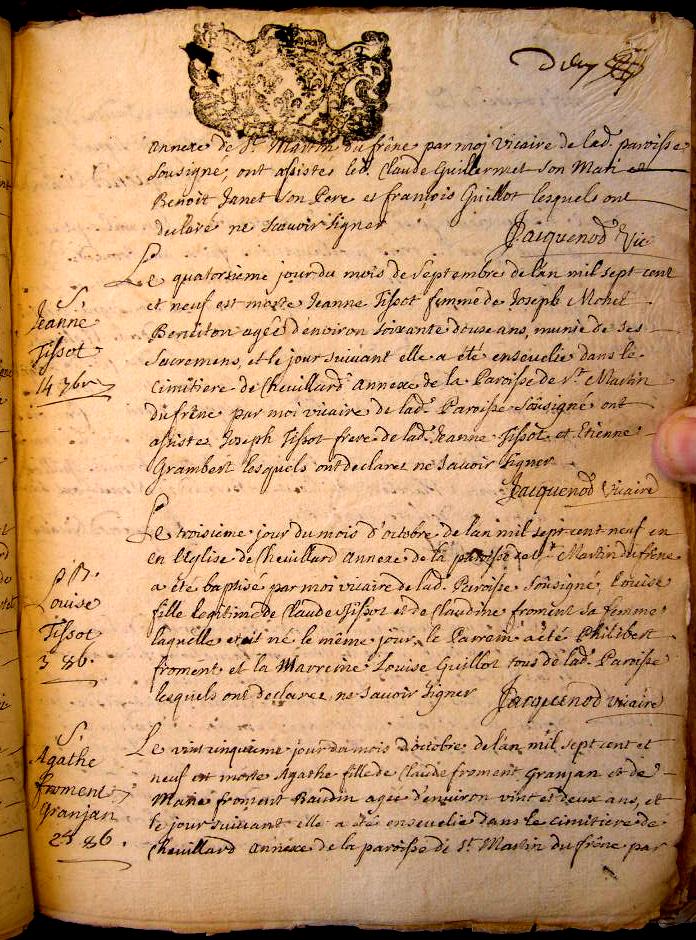 annexe de St. Martin du frêne par moi vicaire de lad. paroisse
sousigne, ont assistes led. Claude Guillermet son Mari et
Benoit Janet son Pere et francois Guillot lesquels ont
declaré ne scavoir signer
Jacquenod Vic
Le quatorsieme jour du mois de Septembre de lan mil sept cent
et neuf est morte Jeanne Tissot femme de Joseph Mohet
Benditon agée denviron soixante douse ans, munie de ses
Sacremens, et le jour suivant elle a été ensevelie dans le
cimitiere de Chevillard annexe de la Paroisse de St. Martin
du frêne par moi vicaire de lad. Paroisse Sousigné ont
assistes Joseph Tissot frere de lad. Jeanne Tissot et Etienne
Grambert lesquels ont declares ne scavoir signer
Jacquenod vicaire
S.
Jeanne
Tissot
14 7bre
Le troisieme jour du mois d'octobre de lan mil sept cent neuf en
en l'Eglise de Chevillard annexe de la paroisse de St. Martin du frêne
a été baptisé par moi vicaire de lad. Paroisse Sousigne, Louise
fille legitime de Claude Tissot et de Claudine froment sa femme
laquelle etoit né le même jour, le Parrein a été Philibert
froment et la Marreine Louise Guillot tous de lad. Paroisse
lesquels ont declarez ne scavoir signer
Jacquenod vicaire
B.
Louise
Tissot
3 8b.
Le vint cinquieme jour du mois d'octobre de lan mil sept cent et
neuf est morte Agathe fille de Claude froment Granjan et de
Marie froment Baudin agée denviron vint et deux ans, et
le jour suivant elle a été ensevelie dans le cimitiere de
Chevillard annexe de la paroisse de St. Martin du frêne par
S.
Agathe
froment
Granjan
25 8b.